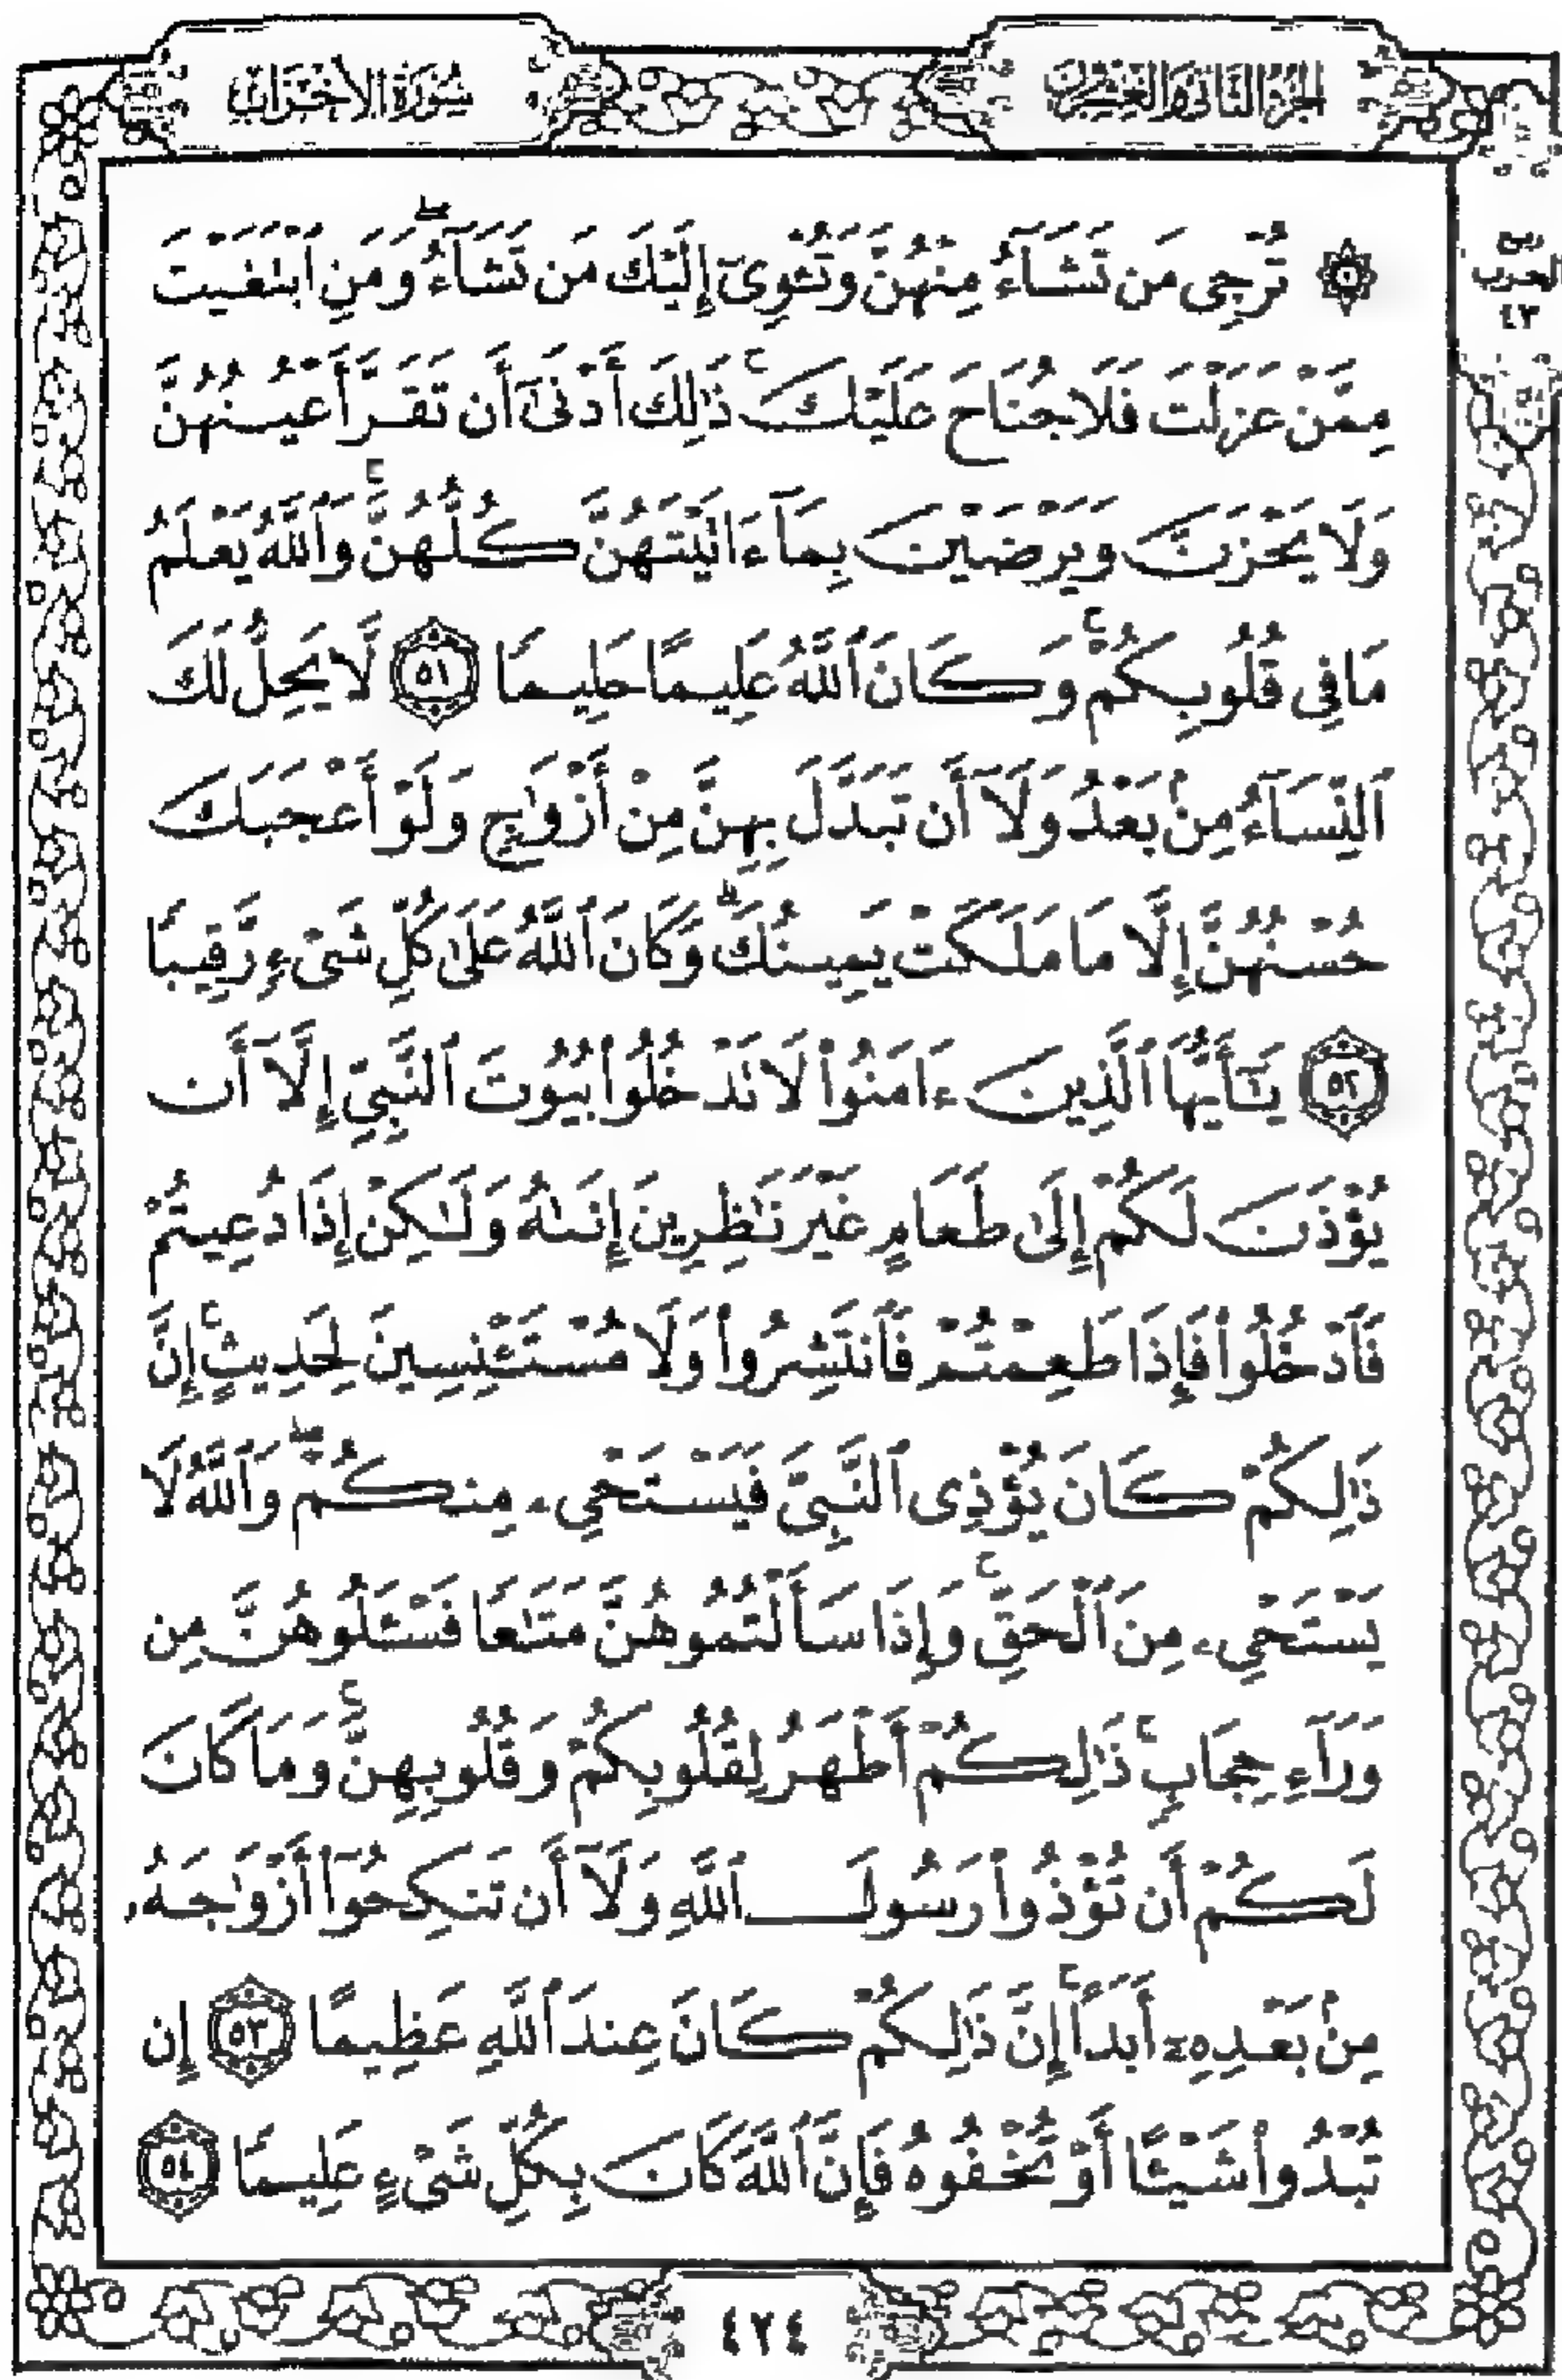 الجزء الثاني والعشرون
سورة الأحزاب
ربع
الحزب
٤٣
۞ تُرْجِى مَن تَشَآءُ مِنْهُنَّ وَتُـْٔوِىٓ إِلَيْكَ مَن تَشَآءُ ۖ وَمَنِ ٱبْتَغَيْتَ
مِمَّنْ عَزَلْتَ فَلَا جُنَاحَ عَلَيْكَ ۚ ذَٰلِكَ أَدْنَىٰٓ أَن تَقَرَّ أَعْيُنُهُنَّ
وَلَا يَحْزَنَّ وَيَرْضَيْنَ بِمَآ ءَاتَيْتَهُنَّ كُلُّهُنَّ ۚ وَٱللَّهُ يَعْلَمُ
مَا فِى قُلُوبِكُمْ ۚ وَكَانَ ٱللَّهُ عَلِيمًا حَلِيمًا ٥١ لَّا يَحِلُّ لَكَ
ٱلنِّسَآءُ مِنۢ بَعْدُ وَلَآ أَن تَبَدَّلَ بِهِنَّ مِنْ أَزْوَٰجٍ وَلَوْ أَعْجَبَكَ
حُسْنُهُنَّ إِلَّا مَا مَلَكَتْ يَمِينُكَ ۗ وَكَانَ ٱللَّهُ عَلَىٰ كُلِّ شَىْءٍ رَّقِيبًا
٥٢ يَـٰٓأَيُّهَا ٱلَّذِينَ ءَامَنُوا۟ لَا تَدْخُلُوا۟ بُيُوتَ ٱلنَّبِىِّ إِلَّآ أَن
يُؤْذَنَ لَكُمْ إِلَىٰ طَعَامٍ غَيْرَ نَـٰظِرِينَ إِنَىٰهُ وَلَـٰكِنْ إِذَا دُعِيتُمْ
فَٱدْخُلُوا۟ فَإِذَا طَعِمْتُمْ فَٱنتَشِرُوا۟ وَلَا مُسْتَـْٔنِسِينَ لِحَدِيثٍ ۚ إِنَّ
ذَٰلِكُمْ كَانَ يُؤْذِى ٱلنَّبِىَّ فَيَسْتَحْىِۦ مِنكُمْ ۖ وَٱللَّهُ لَا
يَسْتَحْىِۦ مِنَ ٱلْحَقِّ ۚ وَإِذَا سَأَلْتُمُوهُنَّ مَتَـٰعًا فَسْـَٔلُوهُنَّ مِن
وَرَآءِ حِجَابٍ ۚ ذَٰلِكُمْ أَطْهَرُ لِقُلُوبِكُمْ وَقُلُوبِهِنَّ ۚ وَمَا كَانَ
لَكُمْ أَن تُؤْذُوا۟ رَسُولَ ٱللَّهِ وَلَآ أَن تَنكِحُوٓا۟ أَزْوَٰجَهُۥ
مِنۢ بَعْدِهِۦٓ أَبَدًا ۚ إِنَّ ذَٰلِكُمْ كَانَ عِندَ ٱللَّهِ عَظِيمًا ٥٣ إِن
تُبْدُوا۟ شَيْـًٔا أَوْ تُخْفُوهُ فَإِنَّ ٱللَّهَ كَانَ بِكُلِّ شَىْءٍ عَلِيمًا ٥٤
٤٢٤